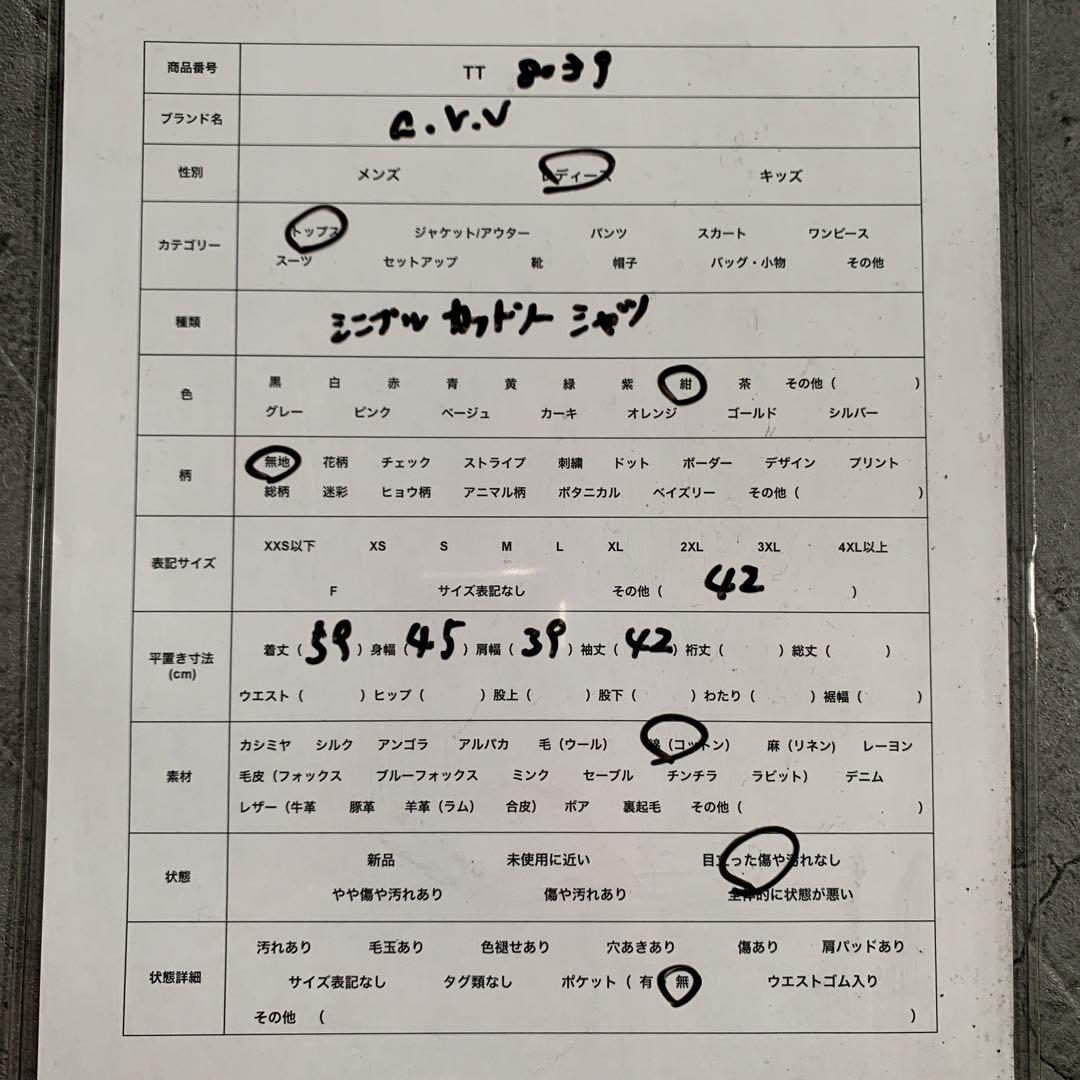 商品番号 TT 8039
ブランド名 a.v.v
性別 メンズ レディース キッズ
カテゴリー トップス ジャケット/アウター パンツ スカート ワンピース
スーツ セットアップ 靴 帽子 バッグ・小物 その他
種類 シンプル カットソー シャツ
色 黒 白 赤 青 黄 緑 紫 紺 茶 その他（ ）
グレー ピンク ベージュ カーキ オレンジ ゴールド シルバー
柄 無地 花柄 チェック ストライプ 刺繍 ドット ボーダー デザイン プリント
総柄 迷彩 ヒョウ柄 アニマル柄 ボタニカル ペイズリー その他（ ）
表記サイズ XXS以下 XS S M L XL 2XL 3XL 4XL以上
F サイズ表記なし その他（ 42 ）
平置き寸法 (cm) 着丈（ 59 ）身幅（ 45 ）肩幅（ 39 ）袖丈（ 42 ）裄丈（ ）総丈（ ）
ウエスト（ ）ヒップ（ ）股上（ ）股下（ ）わたり（ ）裾幅（ ）
素材 カシミヤ シルク アンゴラ アルパカ 毛（ウール） 綿（コットン） 麻（リネン) レーヨン
毛皮（フォックス ブルーフォックス ミンク セーブル チンチラ ラビット） デニム
レザー（牛革 豚革 羊革（ラム） 合皮） ボア 裏起毛 その他（ ）
状態 新品 未使用に近い 目立った傷や汚れなし
やや傷や汚れあり 傷や汚れあり 全体的に状態が悪い
状態詳細 汚れあり 毛玉あり 色褪せあり 穴あきあり 傷あり 肩パッドあり
サイズ表記なし タグ類なし ポケット（ 有 ・ 無 ） ウエストゴム入り
その他 （ ）